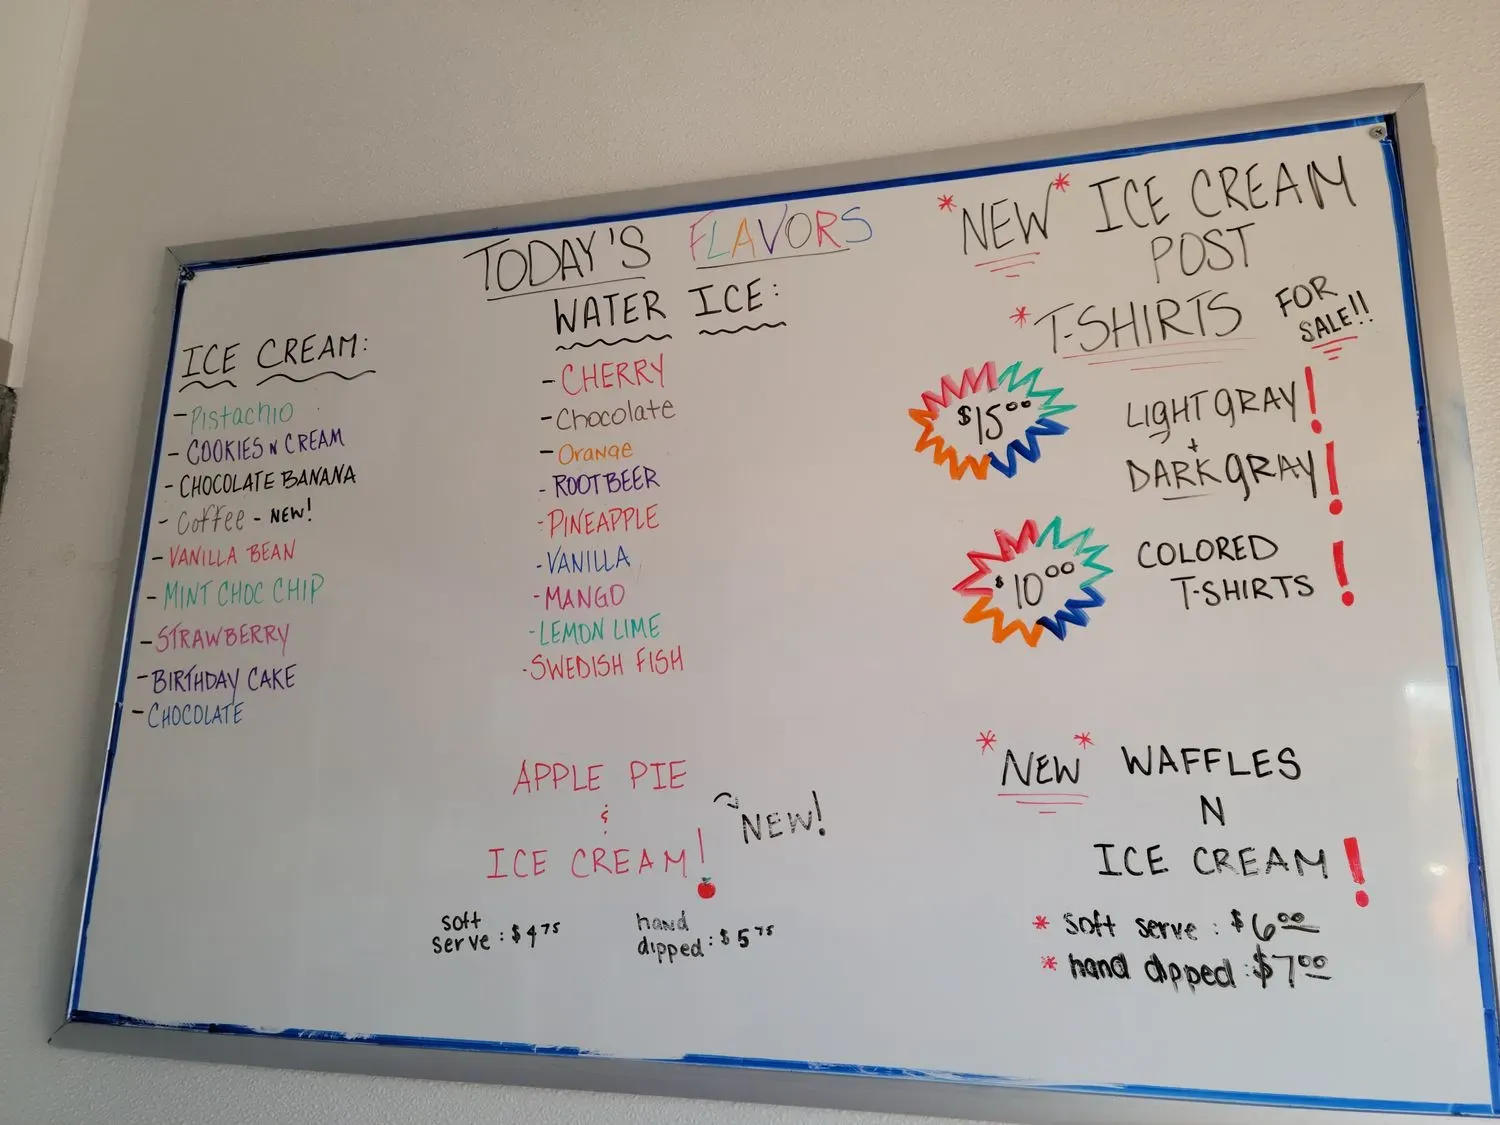 TODAY'S FLAVORS
ICE CREAM:
- Pistachio
- COOKIES N CREAM
- CHOCOLATE BANANA
- Coffee - NEW!
- VANILLA BEAN
- MINT CHOC CHIP
- STRAWBERRY
- BIRTHDAY CAKE
- CHOCOLATE
WATER ICE:
- CHERRY
- Chocolate
- Orange
- ROOTBEER
- PINEAPPLE
- VANILLA
- MANGO
- LEMON LIME
- SWEDISH FISH
APPLE PIE
&
ICE CREAM!
NEW!
soft
serve: $4.75
hand
dipped: $5.75
*NEW* ICE CREAM
POST
*T-SHIRTS FOR
SALE!!
$15.00
LIGHT GRAY!
+
DARK GRAY!
$10.00
COLORED
T-SHIRTS!
*NEW* WAFFLES
N
ICE CREAM!
* soft serve: $6.00
* hand dipped: $7.00